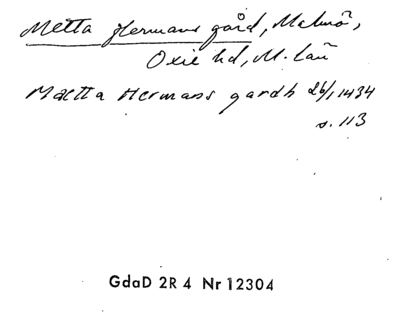 Metta Hermans gård, Malmö,
Oxie hd, M. län
Mætta Hermans gardh 26/1 1434
s. 113
GdaD 2R4 Nr 12304